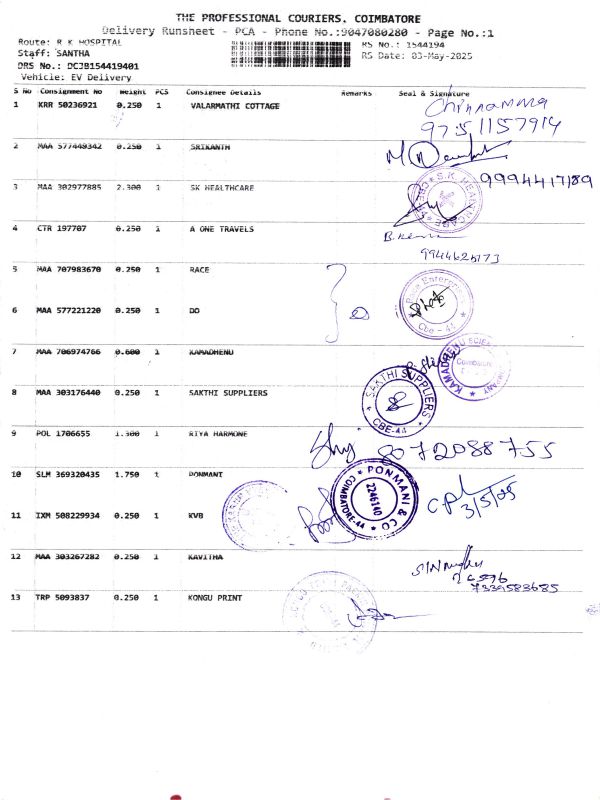 THE PROFESSIONAL COURIERS. COIMBATORE
Delivery Runsheet - PCA - Phone No.:9047080280 - Page No.:1
Route: R K HOSPITAL
RS No.: 1544194
Staff: SANTHA
RS Date: 03-May-2025
DRS No.: DCJB154419401
Vehicle: EV Delivery
S No Consignment No Weight PCS Consignee Details Remarks Seal & Signature
1 KRR 50236921 0.250 1 VALARMATHI COTTAGE
Chinnamma
9751157914
2 MAA 577440342 0.250 1 SRIKANTH
3 MAA 302977885 2.300 1 SK HEALTHCARE
9994417189
4 CTR 197707 0.250 1 A ONE TRAVELS
9944626173
5 MAA 707983670 0.250 1 RACE
6 MAA 577221220 0.250 1 DO
Race Enterprises
Cbe - 45
7 MAA 706974766 0.600 1 KAMADHENU
8 MAA 303176440 0.250 1 SAKTHI SUPPLIERS
SAKTHI SUPPLIERS
CBE-44
9 POL 1706655 1.300 1 RIYA HARMONE
8072088755
10 SLM 369320435 1.750 1 PONMANI
PONMANI & CO
2246140
COIMBATORE-44
3/5/05
11 IXM 508229934 0.250 1 KVB
12 MAA 303267282 0.250 1 KAVITHA
7339583685
13 TRP 5093837 0.250 1 KONGU PRINT